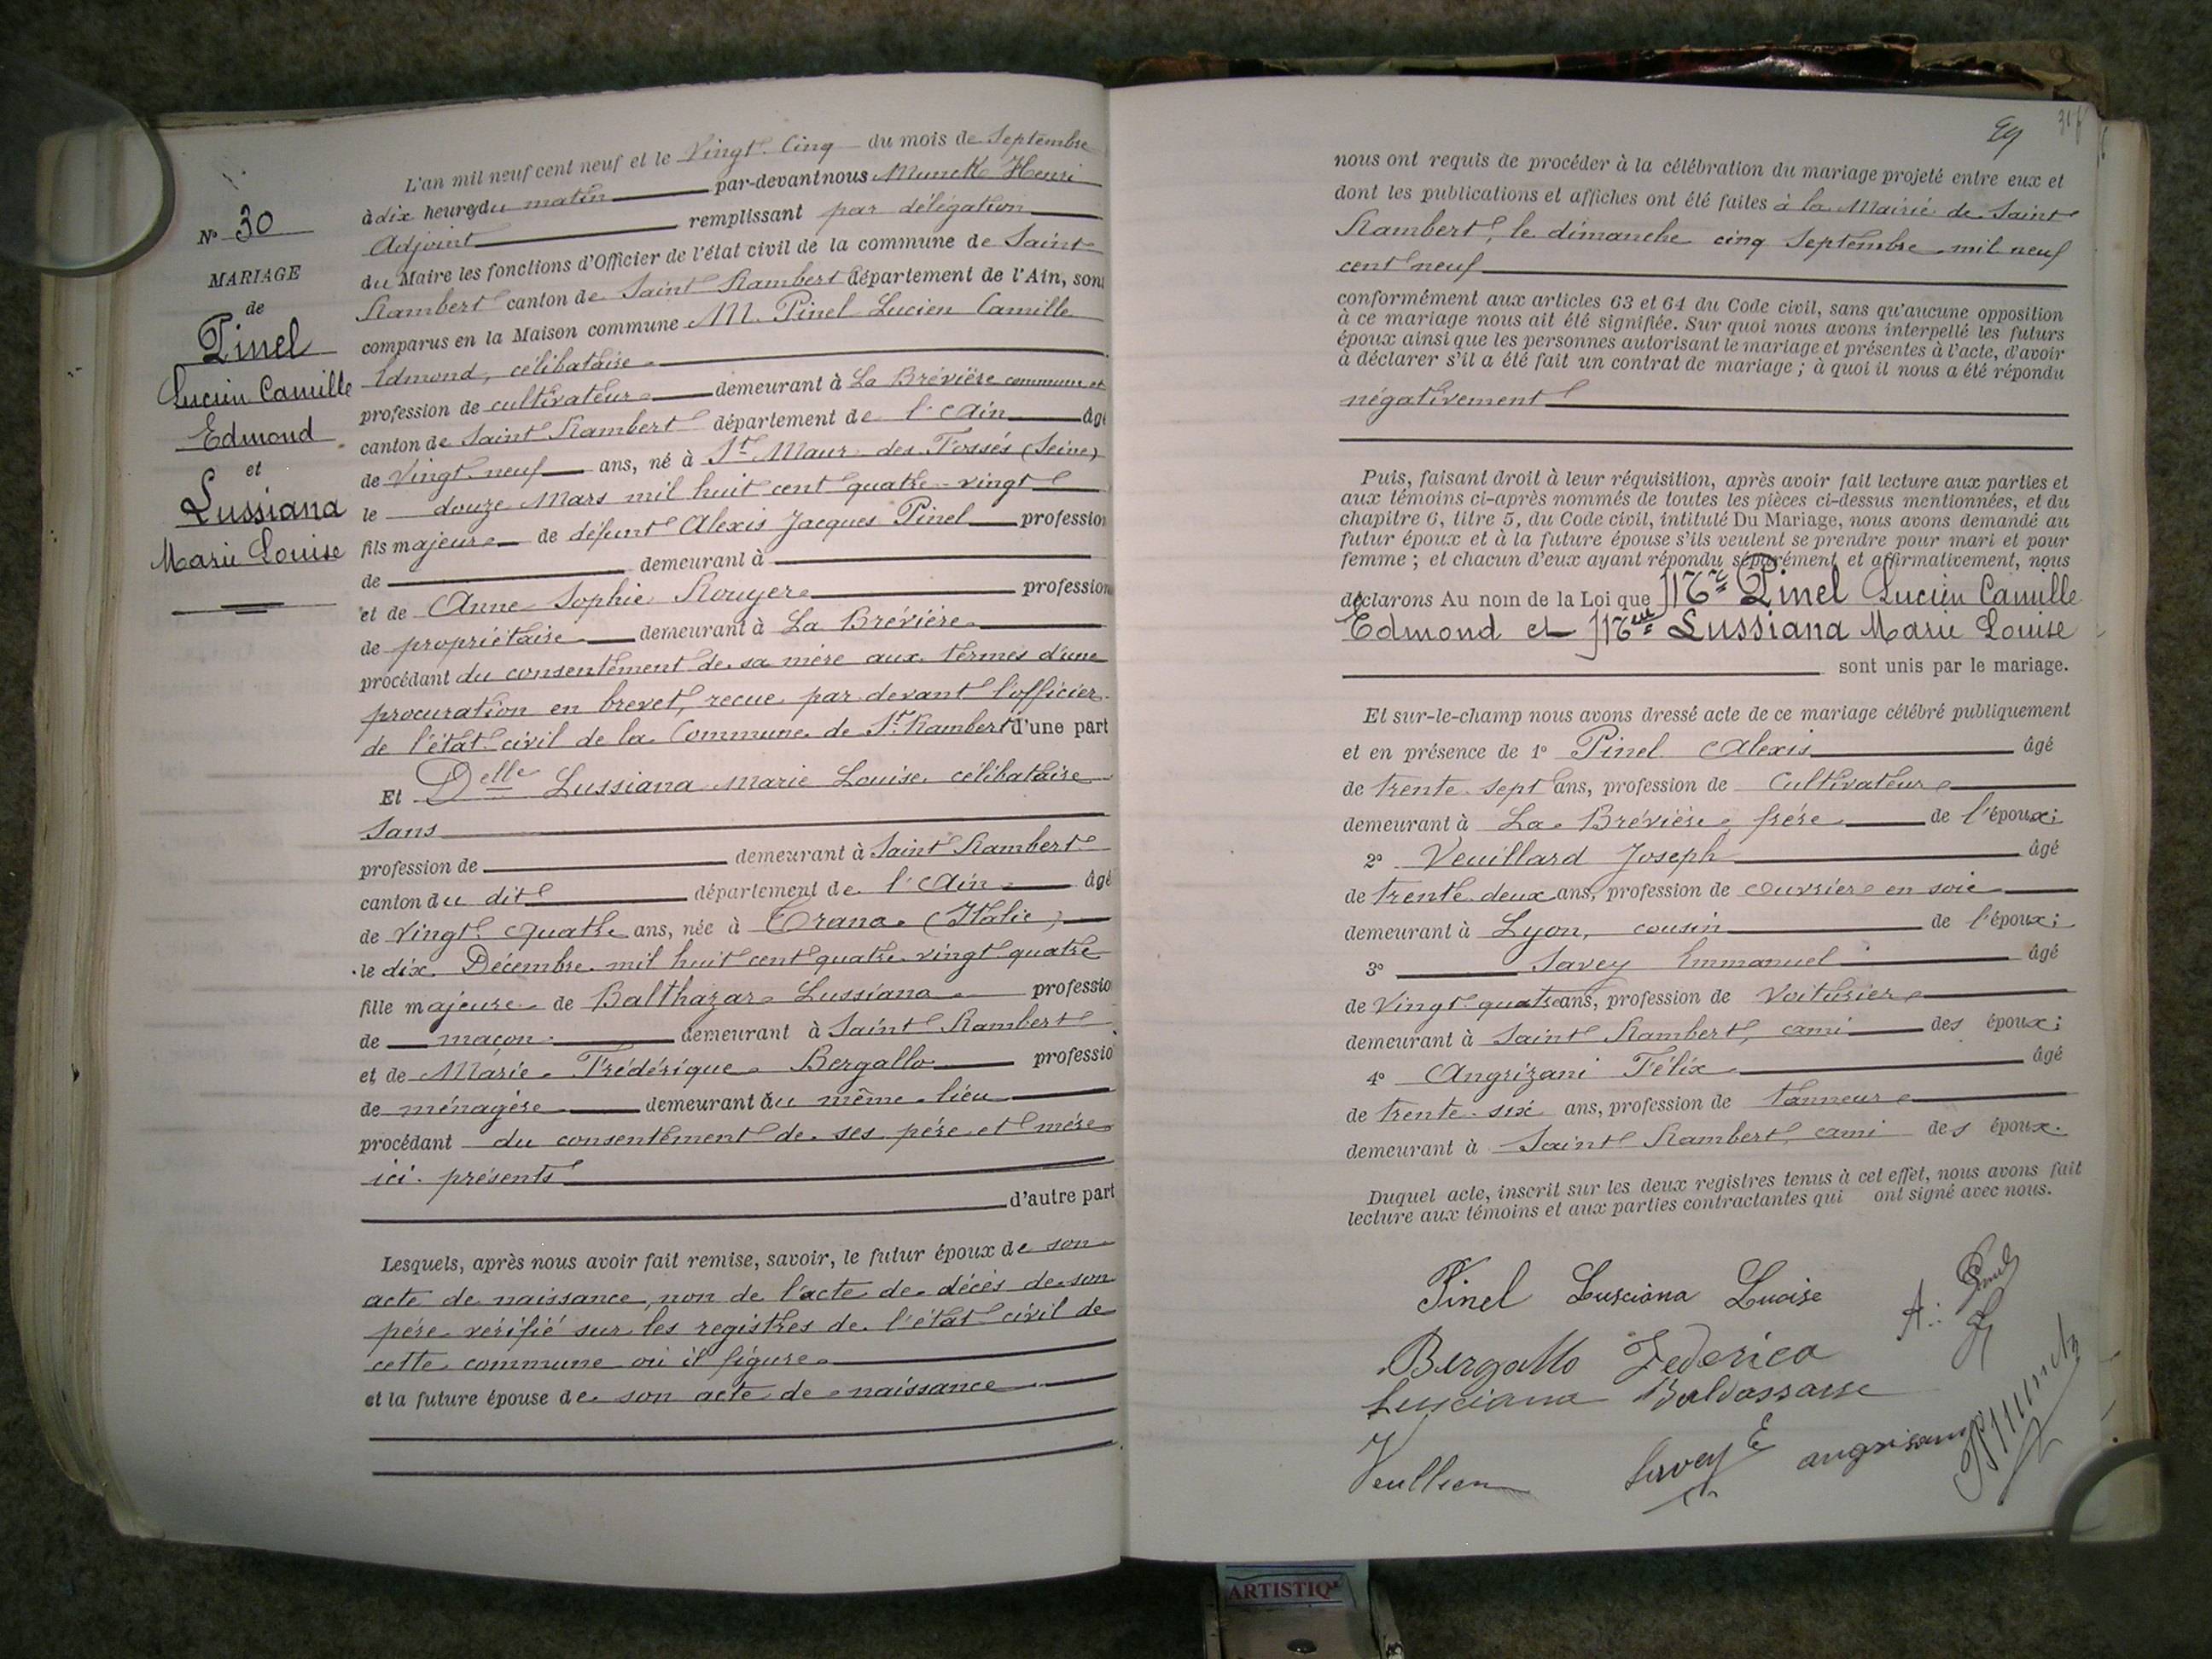 N° 30
MARIAGE
de
Pinel
Lucien Camille
Edmond
et
Lussiana
Marie Louise
L'an mil neuf cent neuf et le Vingt Cinq du mois de Septembre
à dix heures du matin par-devant nous Munck Henri
Adjoint remplissant par délégation
du Maire les fonctions d'Officier de l'état civil de la commune de Saint
Rambert canton de Saint Rambert département de l'Ain, sont
comparus en la Maison commune M. Pinel Lucien Camille
Edmond, célibataire
profession de cultivateur demeurant à La Brévière commune et
canton de Saint Rambert département de l'Ain âgé
de Vingt neuf ans, né à St Maur des Fossés (Seine)
le douze Mars mil huit cent quatre-vingt
fils majeur de défunt Alexis Jacques Pinel profession
de demeurant à
et de Anne Sophie Rouyer profession
de propriétaire demeurant à La Brévière
procédant du consentement de sa mère aux termes d'une
procuration en brevet, recue par devant l'officier
de l'état civil de la Commune de St Rambert d'une part
Et Delle Lussiana Marie Louise célibataire
Sans
profession de demeurant à Saint Rambert
canton du dit département de l'Ain âgé
de Vingt quatre ans, née à Trana (Italie)
le dix Décembre mil huit cent quatre vingt quatre
fille majeure de Balthazar Lussiana professio
de maçon demeurant à Saint Rambert
et de Marie Frédérique Bergallo professio
de ménagère demeurant au même lieu
procédant du consentement de ses père et mère
ici présents
d'autre part
Lesquels, après nous avoir fait remise, savoir, le futur époux de son
acte de naissance, non de l'acte de décès de son
père vérifié sur les registres de l'état civil de
cette commune où il figure
et la future épouse de son acte de naissance
29
nous ont requis de procéder à la célébration du mariage projeté entre eux et
dont les publications et affiches ont été faites à la Mairie de Saint
Rambert, le dimanche cinq Septembre mil neuf
cent neuf
conformément aux articles 63 et 64 du Code civil, sans qu'aucune opposition
à ce mariage nous ait été signifiée. Sur quoi nous avons interpellé les futurs
époux ainsi que les personnes autorisant le mariage et présentes à l'acte, d'avoir
à déclarer s'il a été fait un contrat de mariage ; à quoi il nous a été répondu
négativement
Puis, faisant droit à leur réquisition, après avoir fait lecture aux parties et
aux témoins ci-après nommés de toutes les pièces ci-dessus mentionnées, et du
chapitre 6, titre 5, du Code civil, intitulé Du Mariage, nous avons demandé au
futur époux et à la future épouse s'ils veulent se prendre pour mari et pour
femme ; et chacun d'eux ayant répondu séparément et affirmativement, nous
déclarons Au nom de la Loi que Mr Pinel Lucien Camille
Edmond et Melle Lussiana Marie Louise
sont unis par le mariage.
Et sur-le-champ nous avons dressé acte de ce mariage célébré publiquement
et en présence de 1° Pinel Alexis âgé
de trente sept ans, profession de Cultivateur
demeurant à La Brévière, frère de l'époux;
2° Veuillard Joseph âgé
de trente deux ans, profession de ouvrier en soie
demeurant à Lyon, cousin de l'époux;
3° Savey Emmanuel âgé
de Vingt quatre ans, profession de Voiturier
demeurant à Saint Rambert, ami des époux;
4° Angrizani Félix âgé
de trente six ans, profession de tanneur
demeurant à Saint Rambert, ami des époux.
Duquel acte, inscrit sur les deux registres tenus à cet effet, nous avons fait
lecture aux témoins et aux parties contractantes qui ont signé avec nous.
Pinel Lusciana Luoise
A. Pinel
Bergallo Federica
Lusciana Baldassarre
Savey E angrisani HMunck
ARTISTIQ